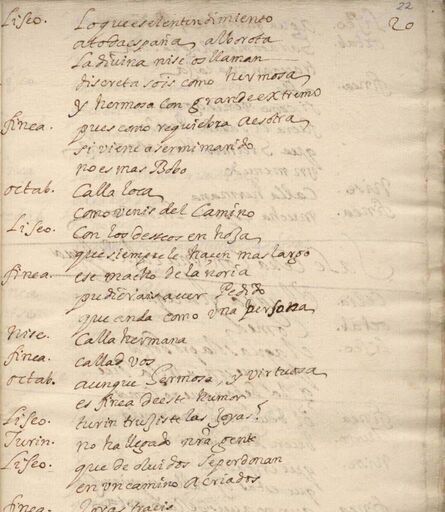 22
20
Liseo. Lo que es el entendimiento
a toda españa alborota
La divina nise os llaman
discreta sois como hermosa
Y hermosa con grande extremo
finea. pues como requiebra a esotra
si viene a ser mi marido
no es mas Bobo
octab. Calla loca
como venis del Camino
Liseo. Con los deseos enoja
que siempre le hacen mas largo
finea. ese macho de la noria
pudierais aver Pedido
que anda como una persona
nise. Calla hermana
finea. callad vos
octab. aunque hermosa, y virtuosa
es finea de este humor
Liseo. turin trujiste las Joyas?
Turin. no ha llegado nra gente
Liseo. que de olvidos se perdonan
en un camino a criados
finea. Joyas traeis